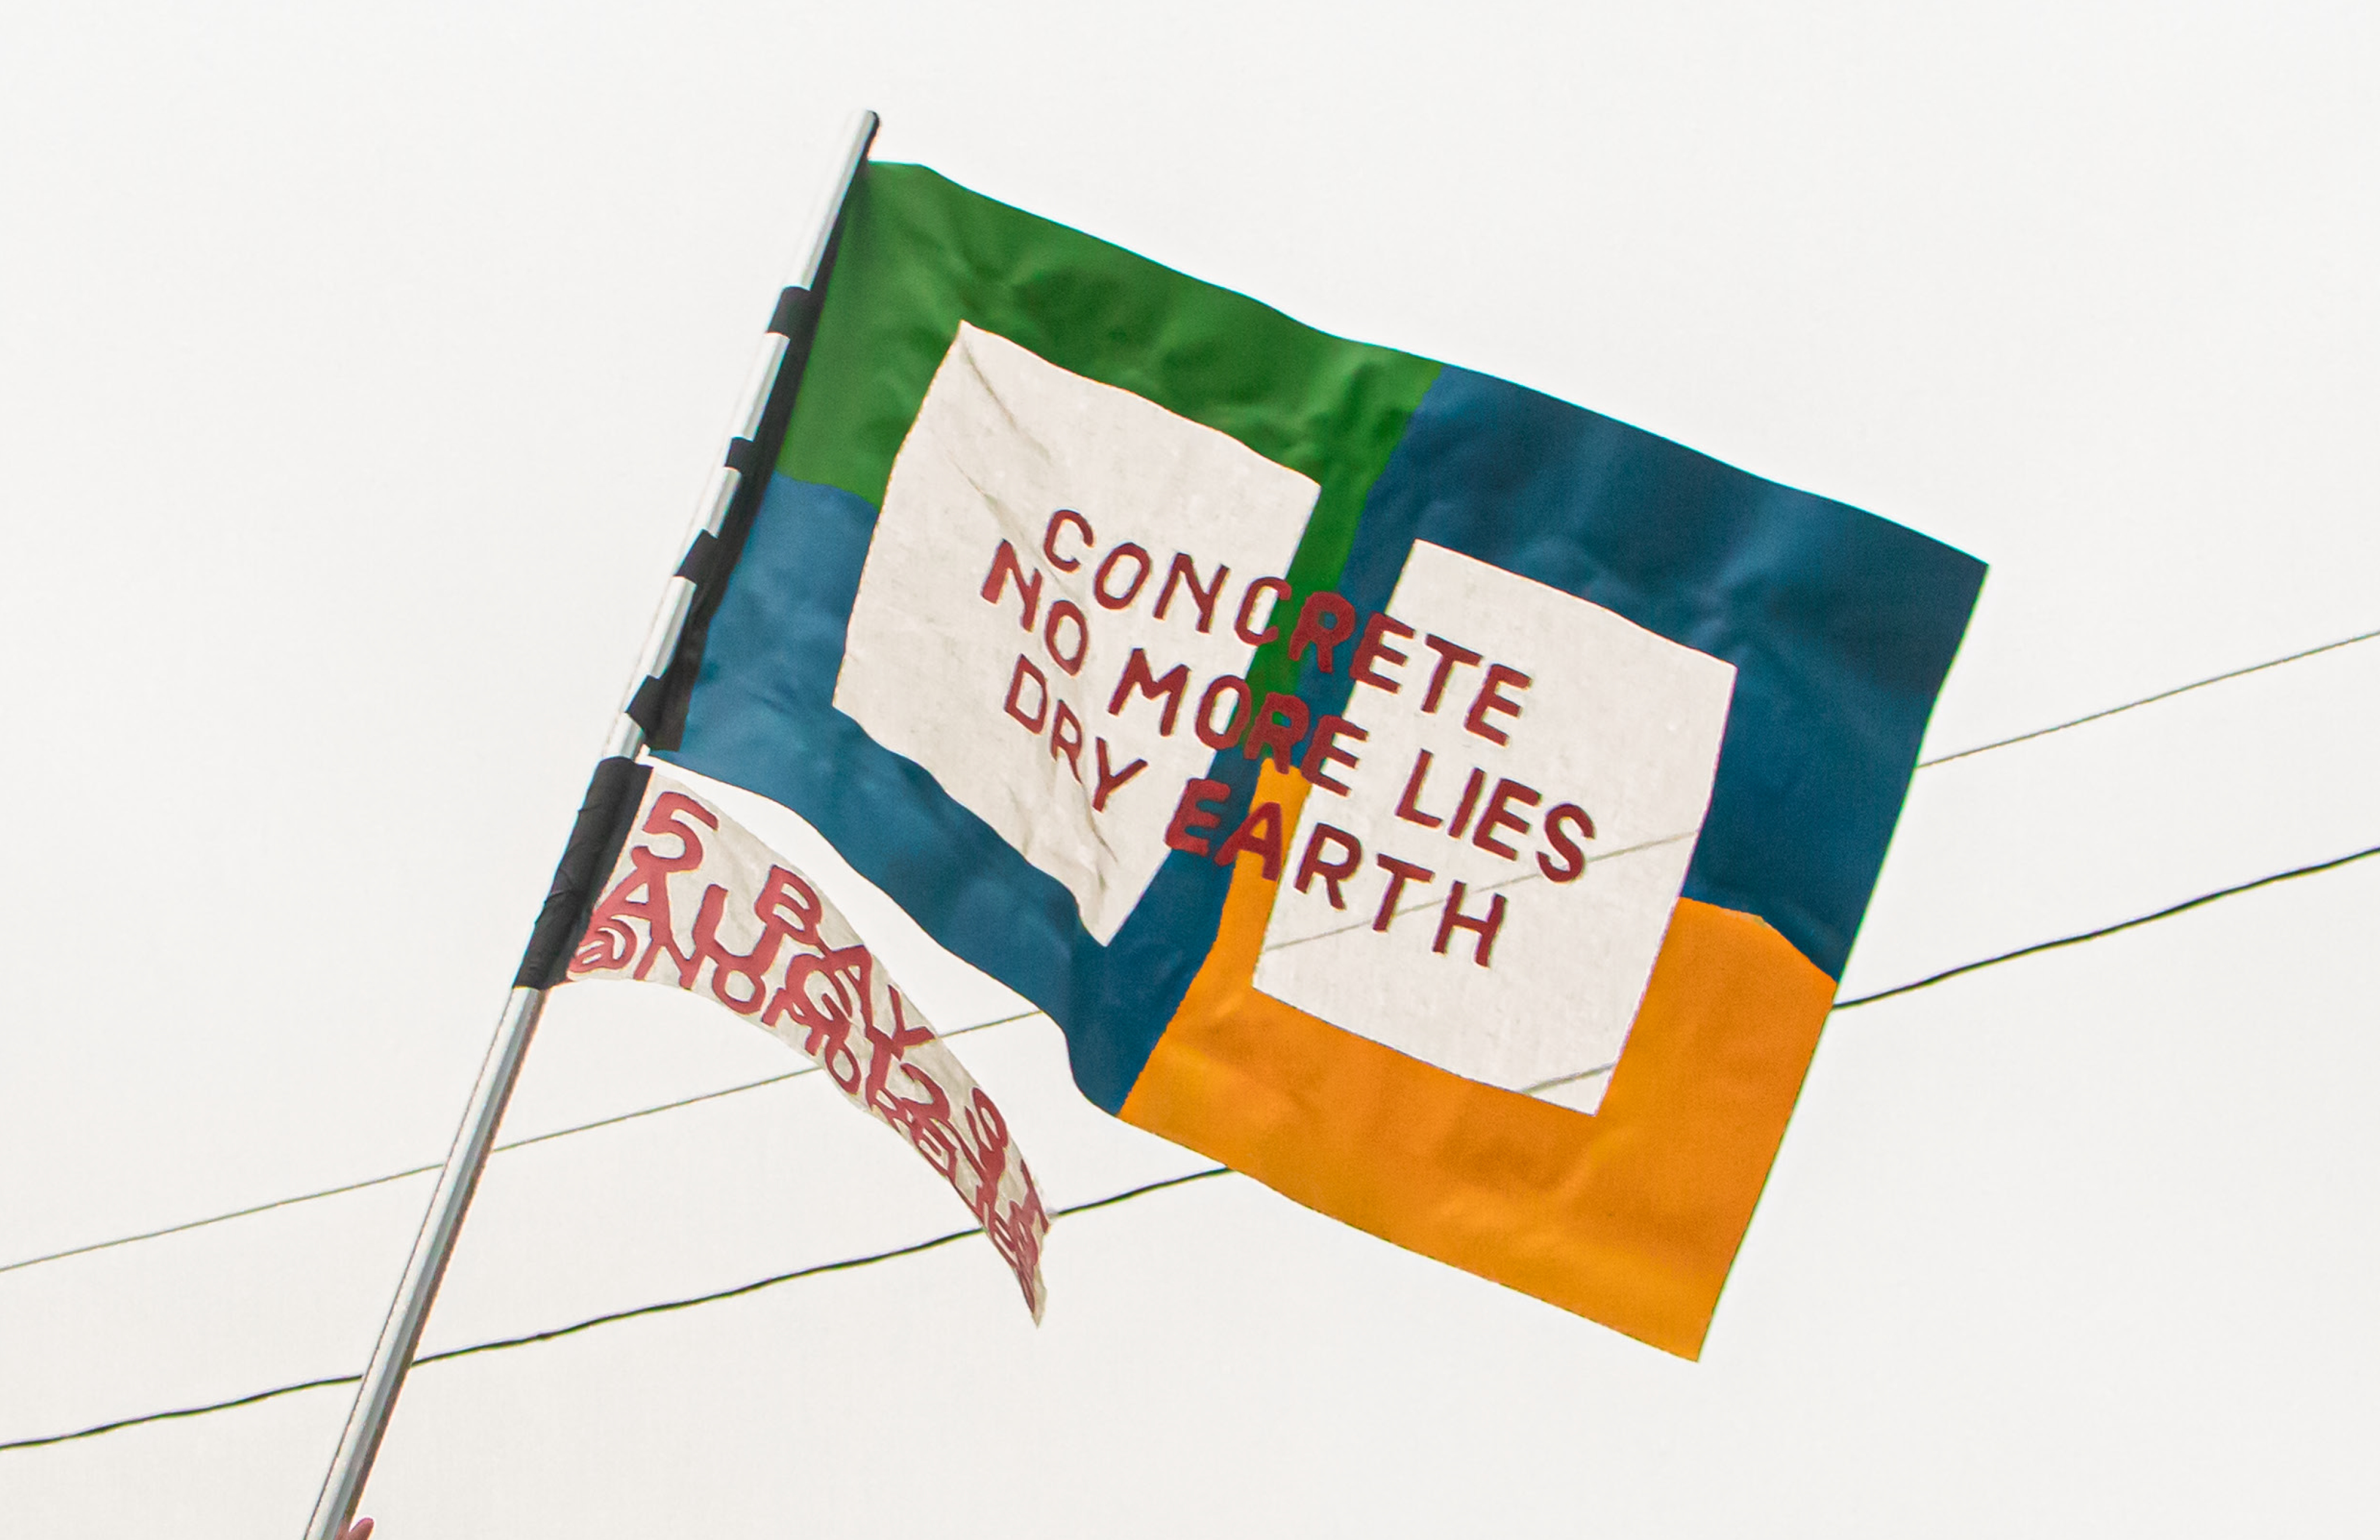 CONCRETE
NO MORE LIES
DRY EARTH
5 BAY
AUGUST
@NOMORELIES